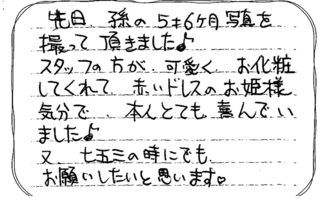 先日 孫の 5才6ヶ月 写真を
撮って 頂きました♪
スタッフの方が 可愛く お化粧
してくれて 赤いドレスのお姫様
気分で 本人とても 喜んでい
ました♪
又 七五三の時にでも
お願いしたいと思います。